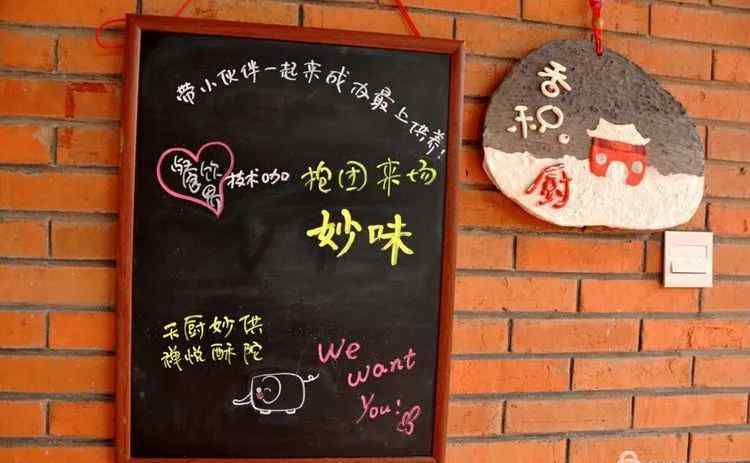 带小伙伴一起来成为最上供养!
技术咖
抱团来场
妙味
天厨妙供
禅悦酥陀
We
want
You!
香积
厨